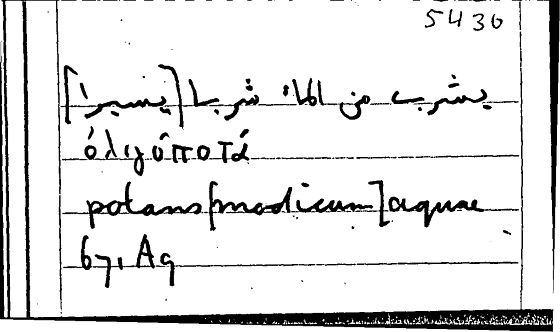 5430
يشرب من الماء شربا [يسيرا]
ὀλιγοποτά
potans [modicum] aquae
67, Aq